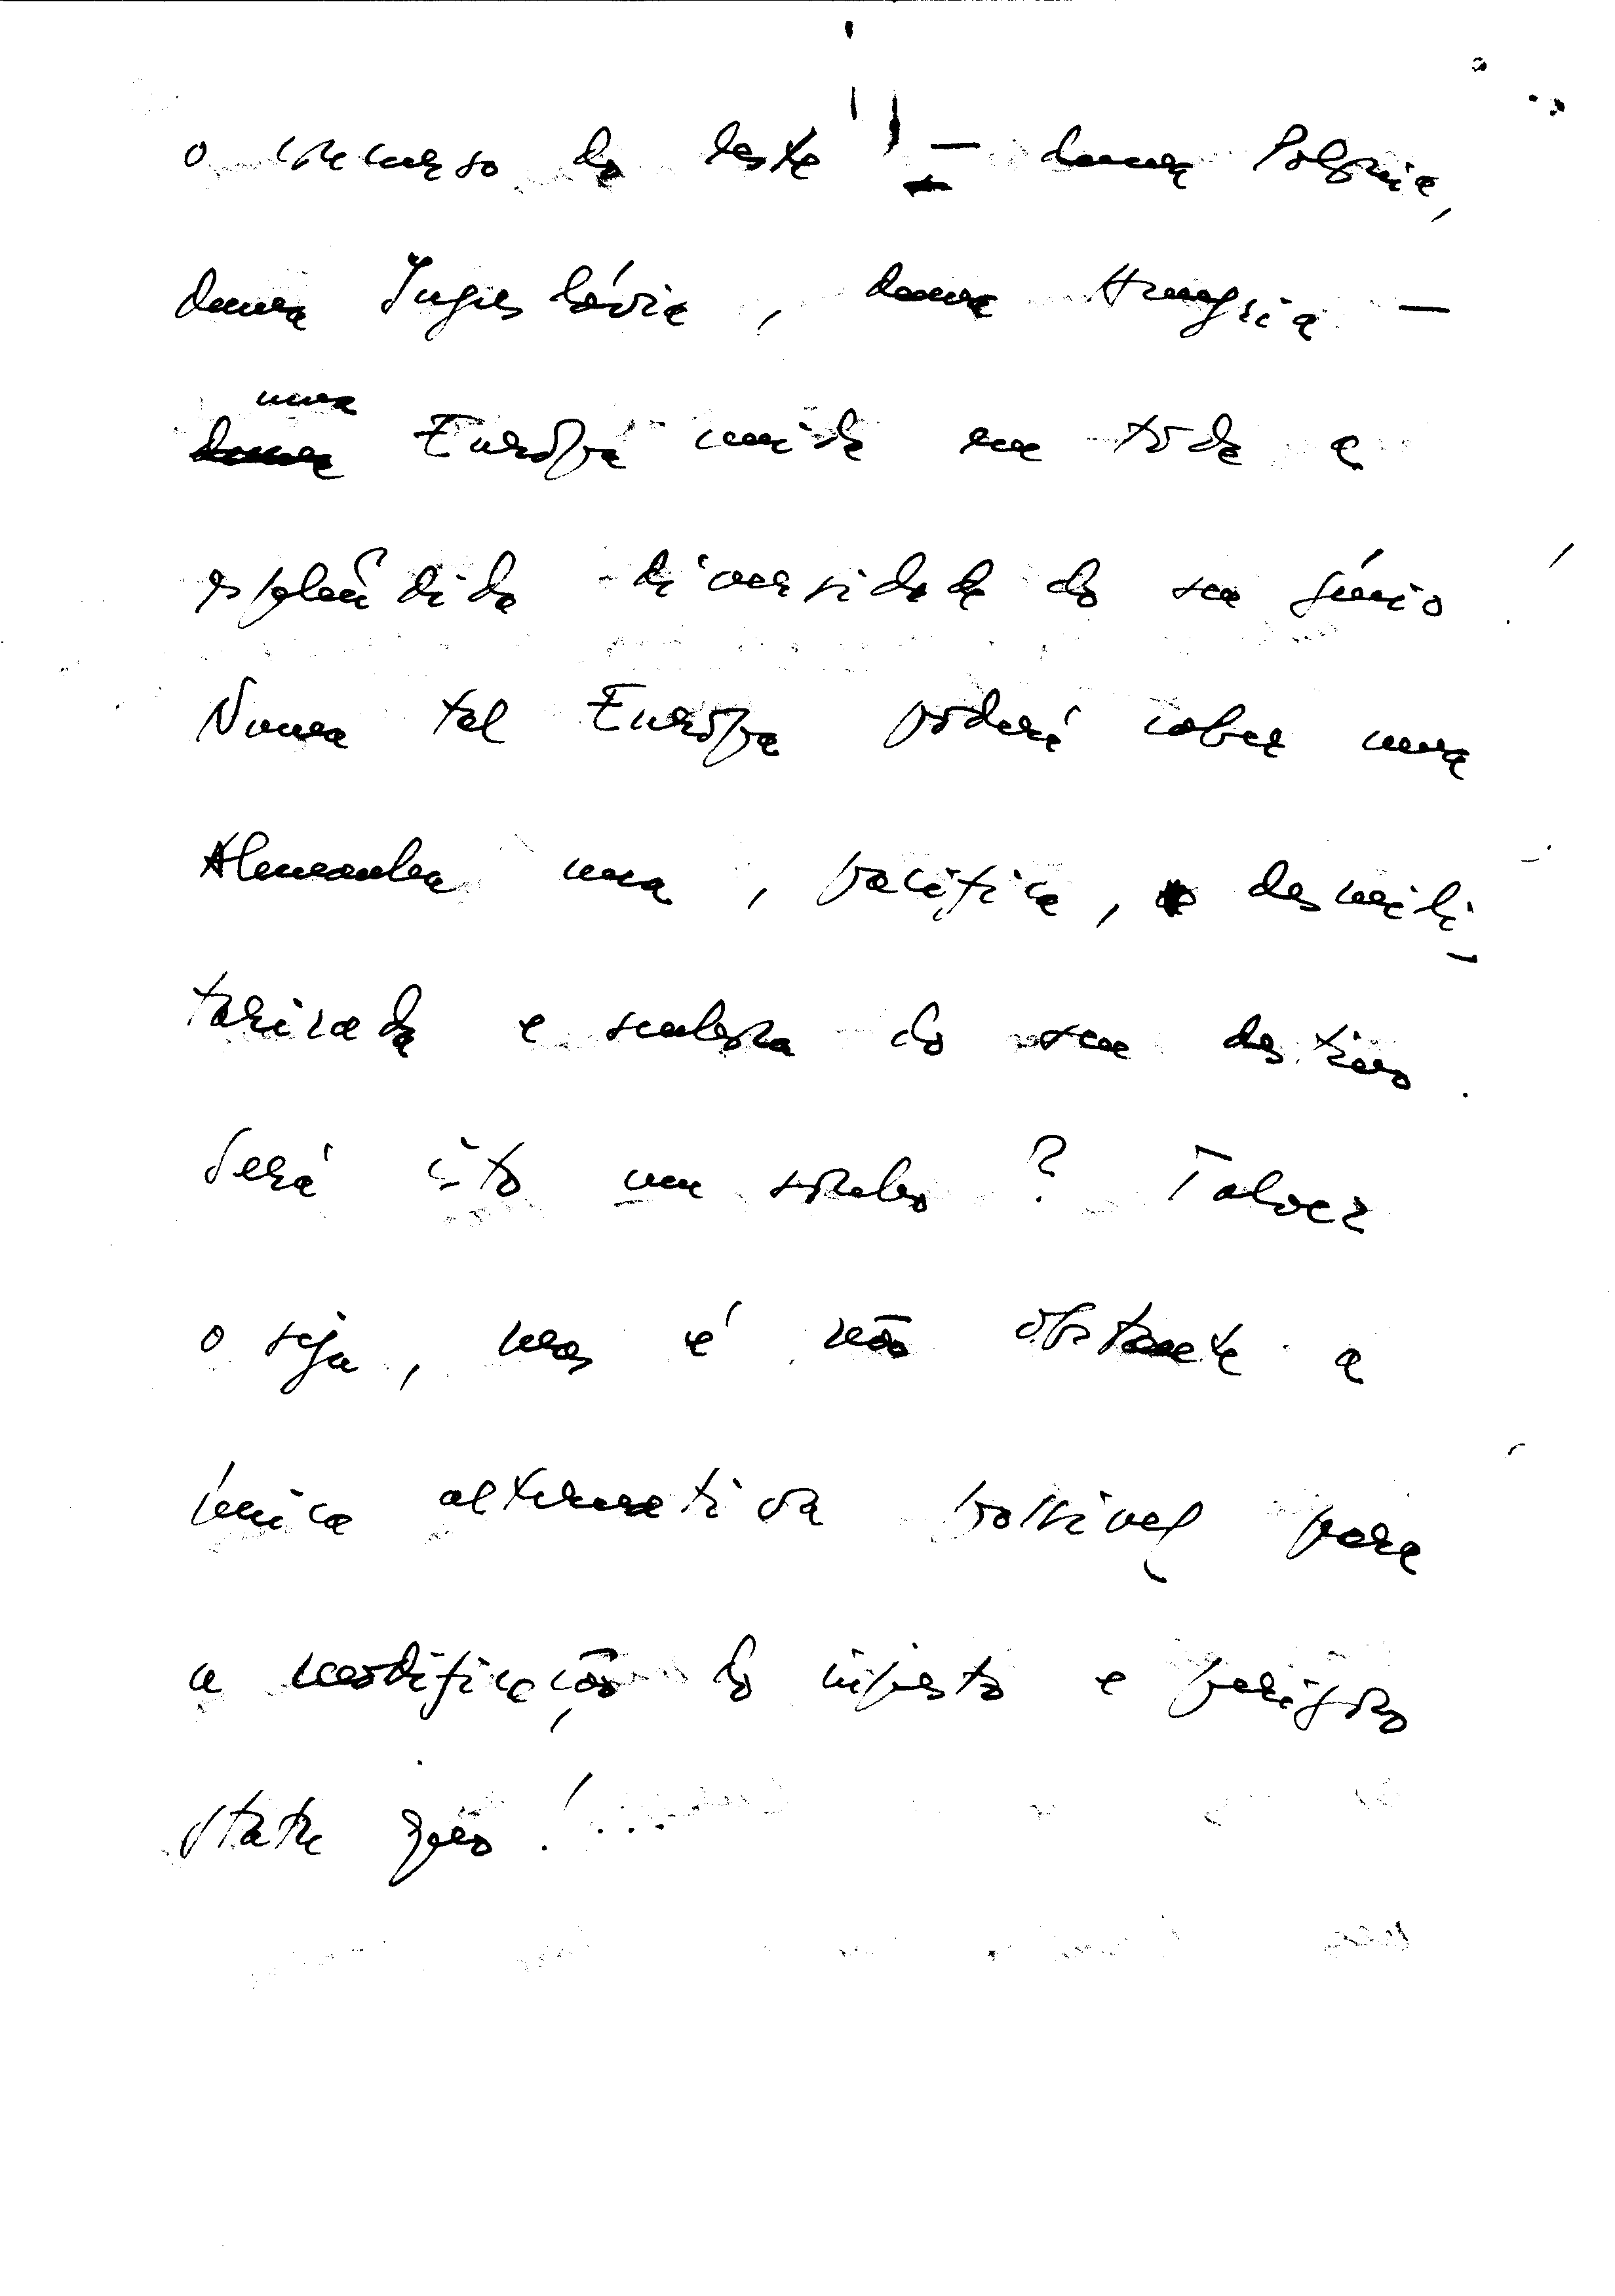 o concurso do leste — duma Polónia,
duma Jugoslávia, duma Hungria —
uma
duma Európa unida em tôda a
esplêndida diversidade do seu génio!
Numa tal Európa poderá caber uma
Alemanha una, pacífica, desmili-
tarizada e senhora do seu destino.
Será isto um sonho? Talvez
o seja, mas é não obstante a
única alternativa possível para
a modificação do injusto e perigoso
statu quo!...